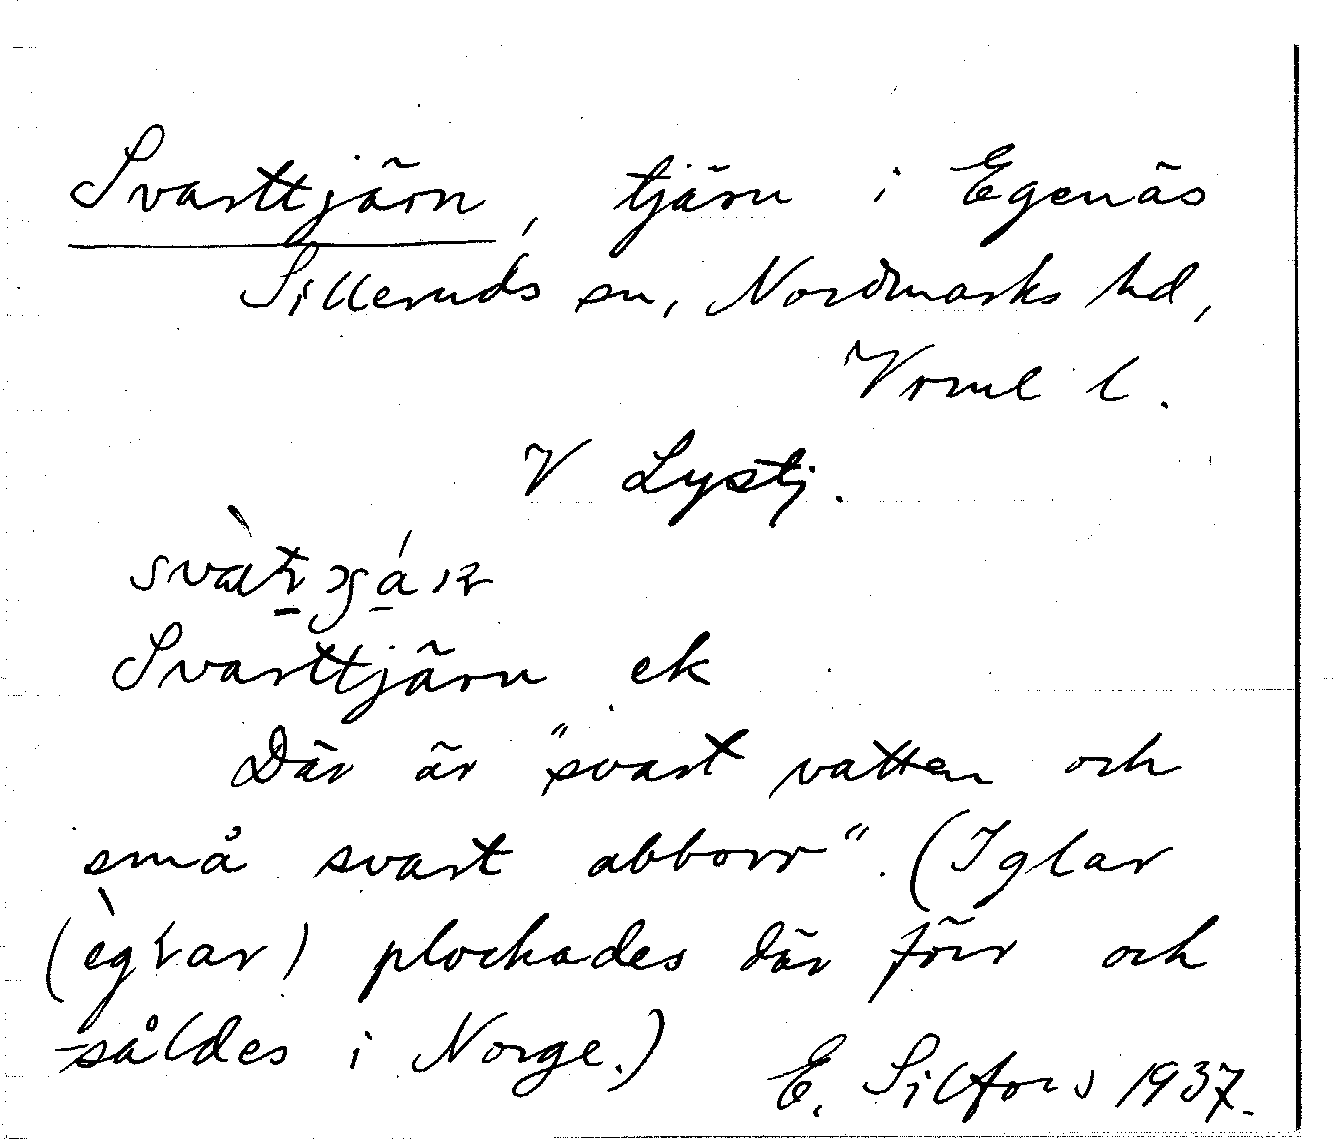 Svarttjärn, tjärn i Egenäs
Silleruds sn, Nordmarks hd,
Vrml l.
V Lystj.
Svarttjärn ek
Där är "svart vatten och
små svart abborr". (Iglar
plockades där förr och
såldes i Norge.)
E. Silfors 1937.